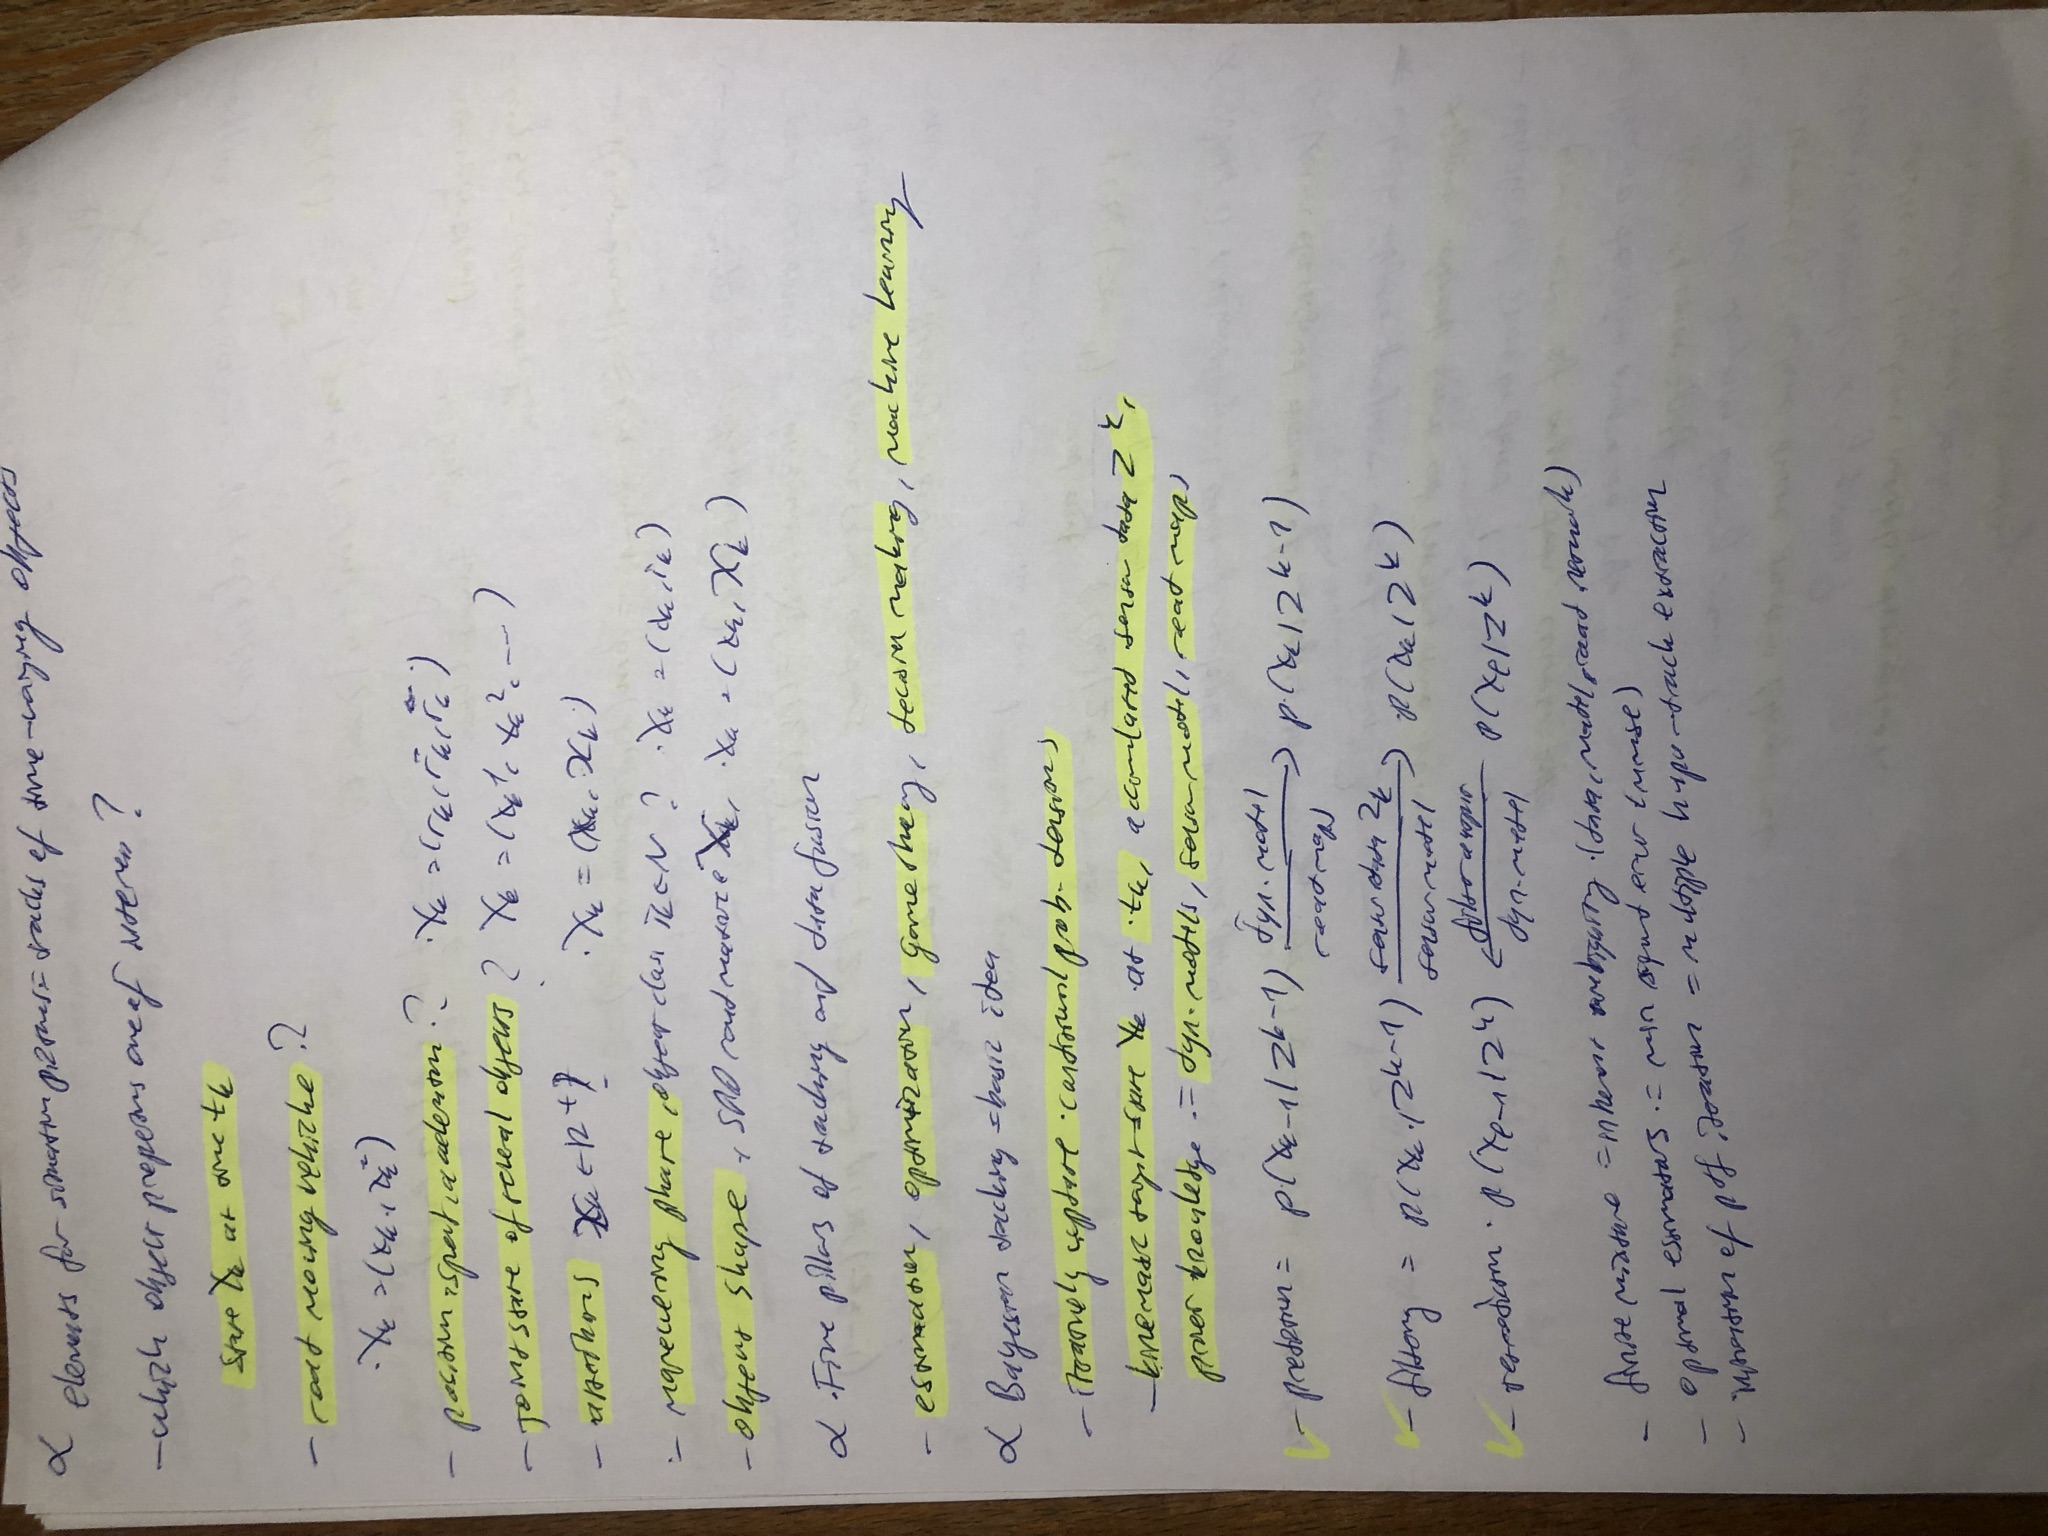 α elements for situation picture = tracks of time-varying objects
- which object properties are of interest?
state Xk at time tk
- road moving vehicle ?
· Xk = (xk, ẋk)
- position, speed, acceleration ? · Xk = (rk, ṙk, r̈k)
- joint state of several objects ? Xk = (xk1, xk2, ...)
- attributes xk ∈ R+ ? · Xk = (xk, xk)
- maneuvering phase, object class ik ∈ N ? · Xk = (xk, ik)
- object shape, SPD rand matrix Xk, · Xk = (xk, Xk)
α · Five pillars of tracking and data fusion
- estimation, optimization, game theory, decision making, machine learning
α Bayesian tracking = basic idea
- iteratively update · conditional prob. densities
- kinematic target state Xk at · tk, accumulated sensor data Z k,
prior knowledge := dyn. models, sensor model, road map,
- prediction = p(xk-1|Zk-1) dyn. model road map p(xk|Zk-1)
- filtering = p(xk|Zk-1) sensor data Zk sensor model p(xk|Zk)
- retrodiction · p(xl-1|Zk) filter output dyn. model p(xl|Zk)
- finite mixture = inherent ambiguity · (data, model, road network)
- optimal estimators := min squared error (mmse)
- of pdf iteration = multiple hypo-track extraction